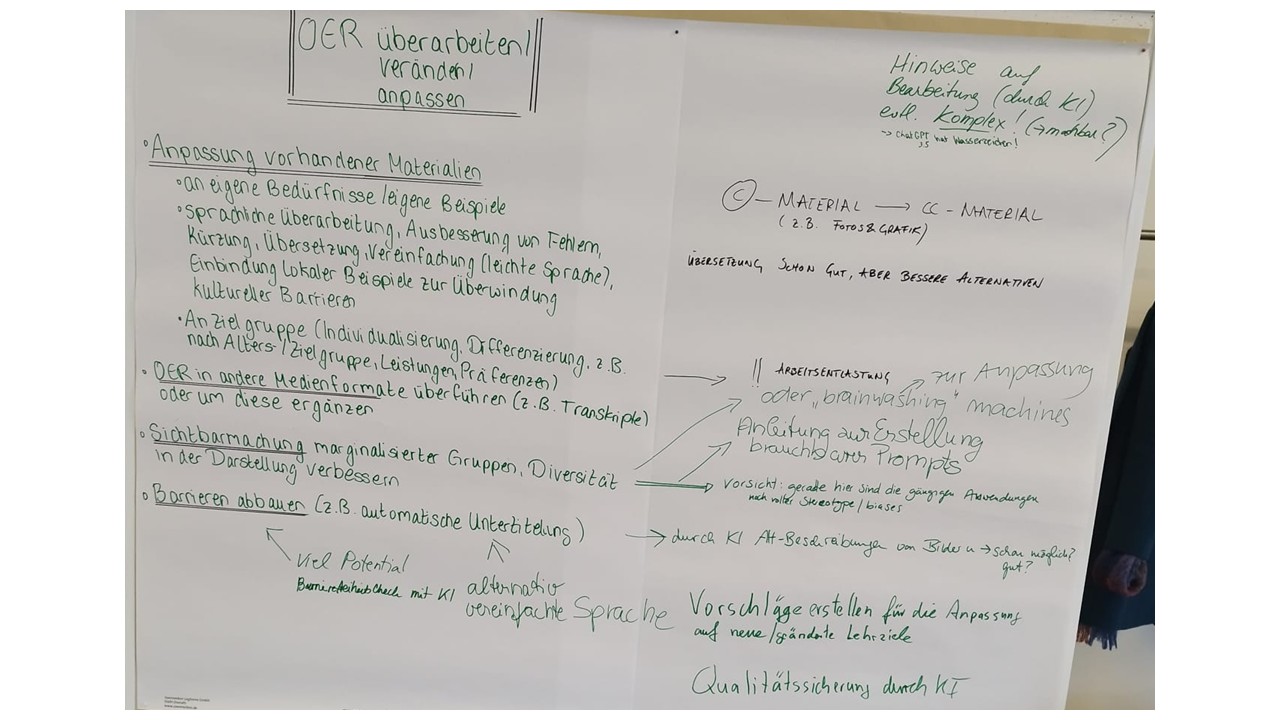 OER überarbeiten/
verändern/
anpassen
• Anpassung vorhandener Materialien
• an eigene Bedürfnisse / eigene Beispiele
• sprachliche Überarbeitung, Ausbesserung von Fehlern,
Kürzung, Übersetzung, Vereinfachung (leichte Sprache),
Einbindung lokaler Beispiele zur Überwindung
kultureller Barrieren
• An Zielgruppe (Individualisierung, Differenzierung, z.B.
nach Alters-/Zielgruppe, Leistungen, Präferenzen)
• OER in andere Medienformate überführen (z.B. Transkripte)
oder um diese ergänzen
• Sichtbarmachung marginalisierter Gruppen, Diversität
in der Darstellung verbessern
• Barrieren abbauen (z.B. automatische Untertitelung)
Viel Potential
Barrierefreiheitscheck mit KI
alternativ
vereinfachte Sprache
Hinweise auf
Bearbeitung (durch KI)
evtl. Komplex! (→ machbar?)
→ ChatGPT hat Wasserzeichen!
© – MATERIAL → CC – MATERIAL
(z.B. FOTOS & GRAFIK)
ÜBERSETZUNG SCHON GUT, ABER BESSERE ALTERNATIVEN
!! ARBEITSENTLASTUNG
zur Anpassung
oder „brainwashing" machines
Anleitung zur Erstellung
brauchbarer Prompts
Vorsicht: gerade hier sind die gängigen Anwendungen
noch voller Stereotype / biases
→ durch KI Alt-Beschreibungen von Bildern → schon möglich?
gut?
Vorschläge erstellen für die Anpassung
auf neue / geänderte Lehrziele
Qualitätssicherung durch KI